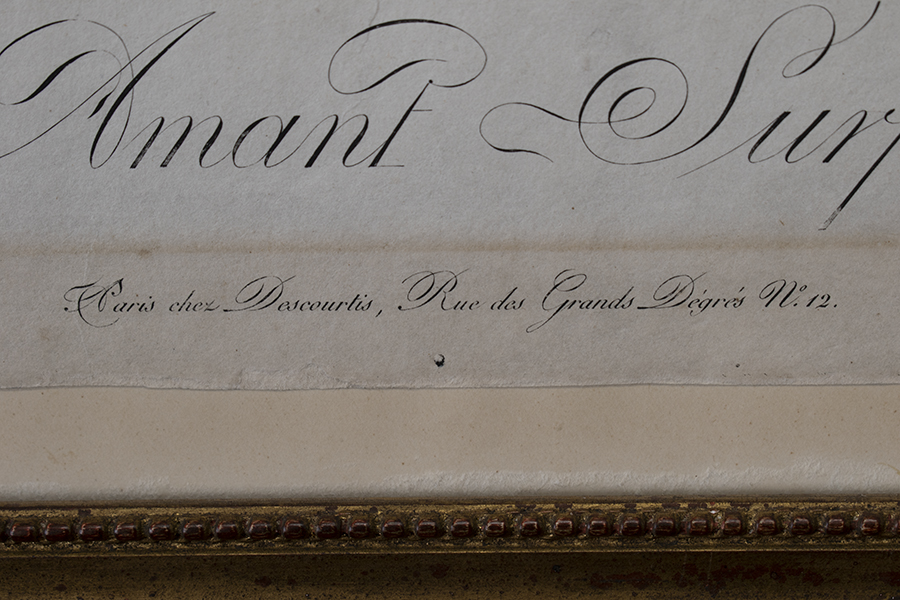 Amant Surp
Paris chez Descourtis, Rue des Grands Dégrés N.º 12.